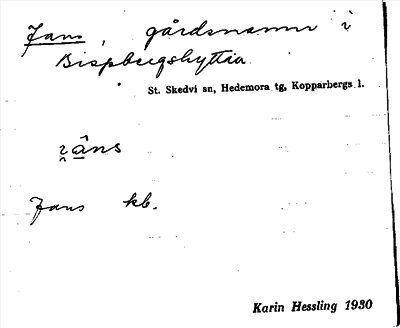 Jans, gårdsnamn i
Bispbergshyttan.
St. Skedvi sn, Hedemora tg, Kopparbergs l.
Jans kb.
Karin Hessling 1930